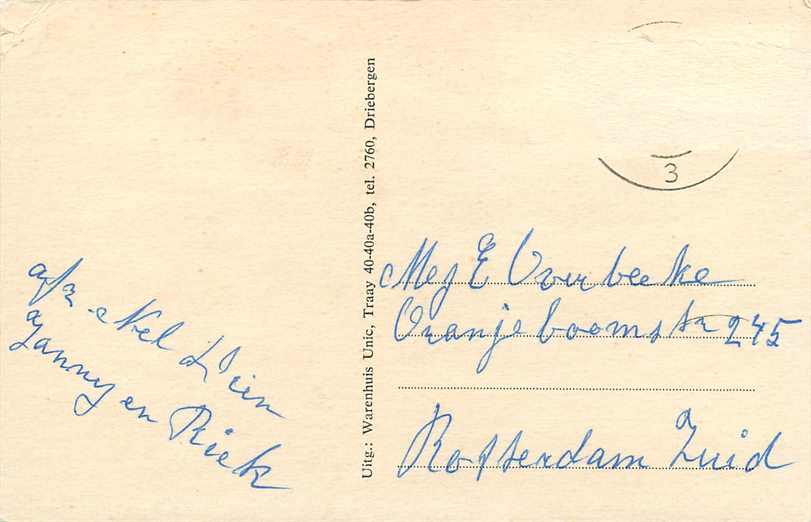 afz. Nel Dien
Janny en Riek
Uitg.: Warenhuis Unic, Traay 40-40a-40b, tel. 2760, Driebergen
3
Mej E Overbeeke
Oranjeboomstr 245
Rotterdam Zuid